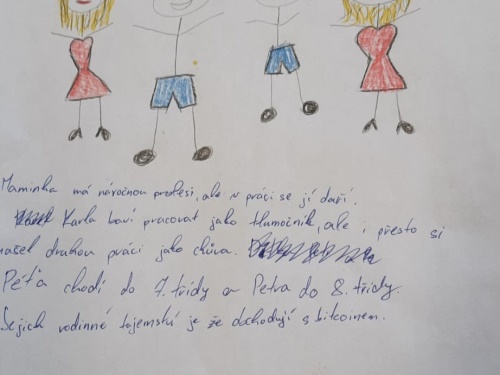 Maminka má náročnou profesi, ale v práci se jí daří.
Karla baví pracovat jako tlumočník, ale i přesto si
našel druhou práci jako chůva.
Péťa chodí do 7. třídy a Petra do 8. třídy.
Jejich rodinné tajemství je že obchodují s bitcoinem.